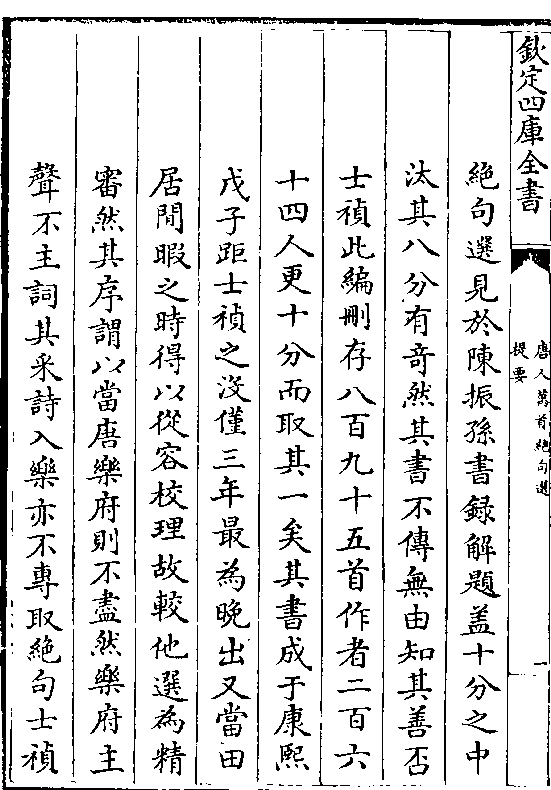 欽定四庫全書
唐人萬首絶句選
提要
一
絶句選見於陳振孫書録解題葢十分之中
汰其八分有竒然其書不傳無由知其善否
士禎此編刪存八百九十五首作者二百六
十四人更十分而取其一矣其書成于康熙
戊子距士禎之沒僅三年最為晚出又當田
居閒暇之時得以從容校理故較他選為精
審然其序謂以當唐樂府則不盡然樂府主
聲不主詞其采詩入樂亦不專取絶句士禎